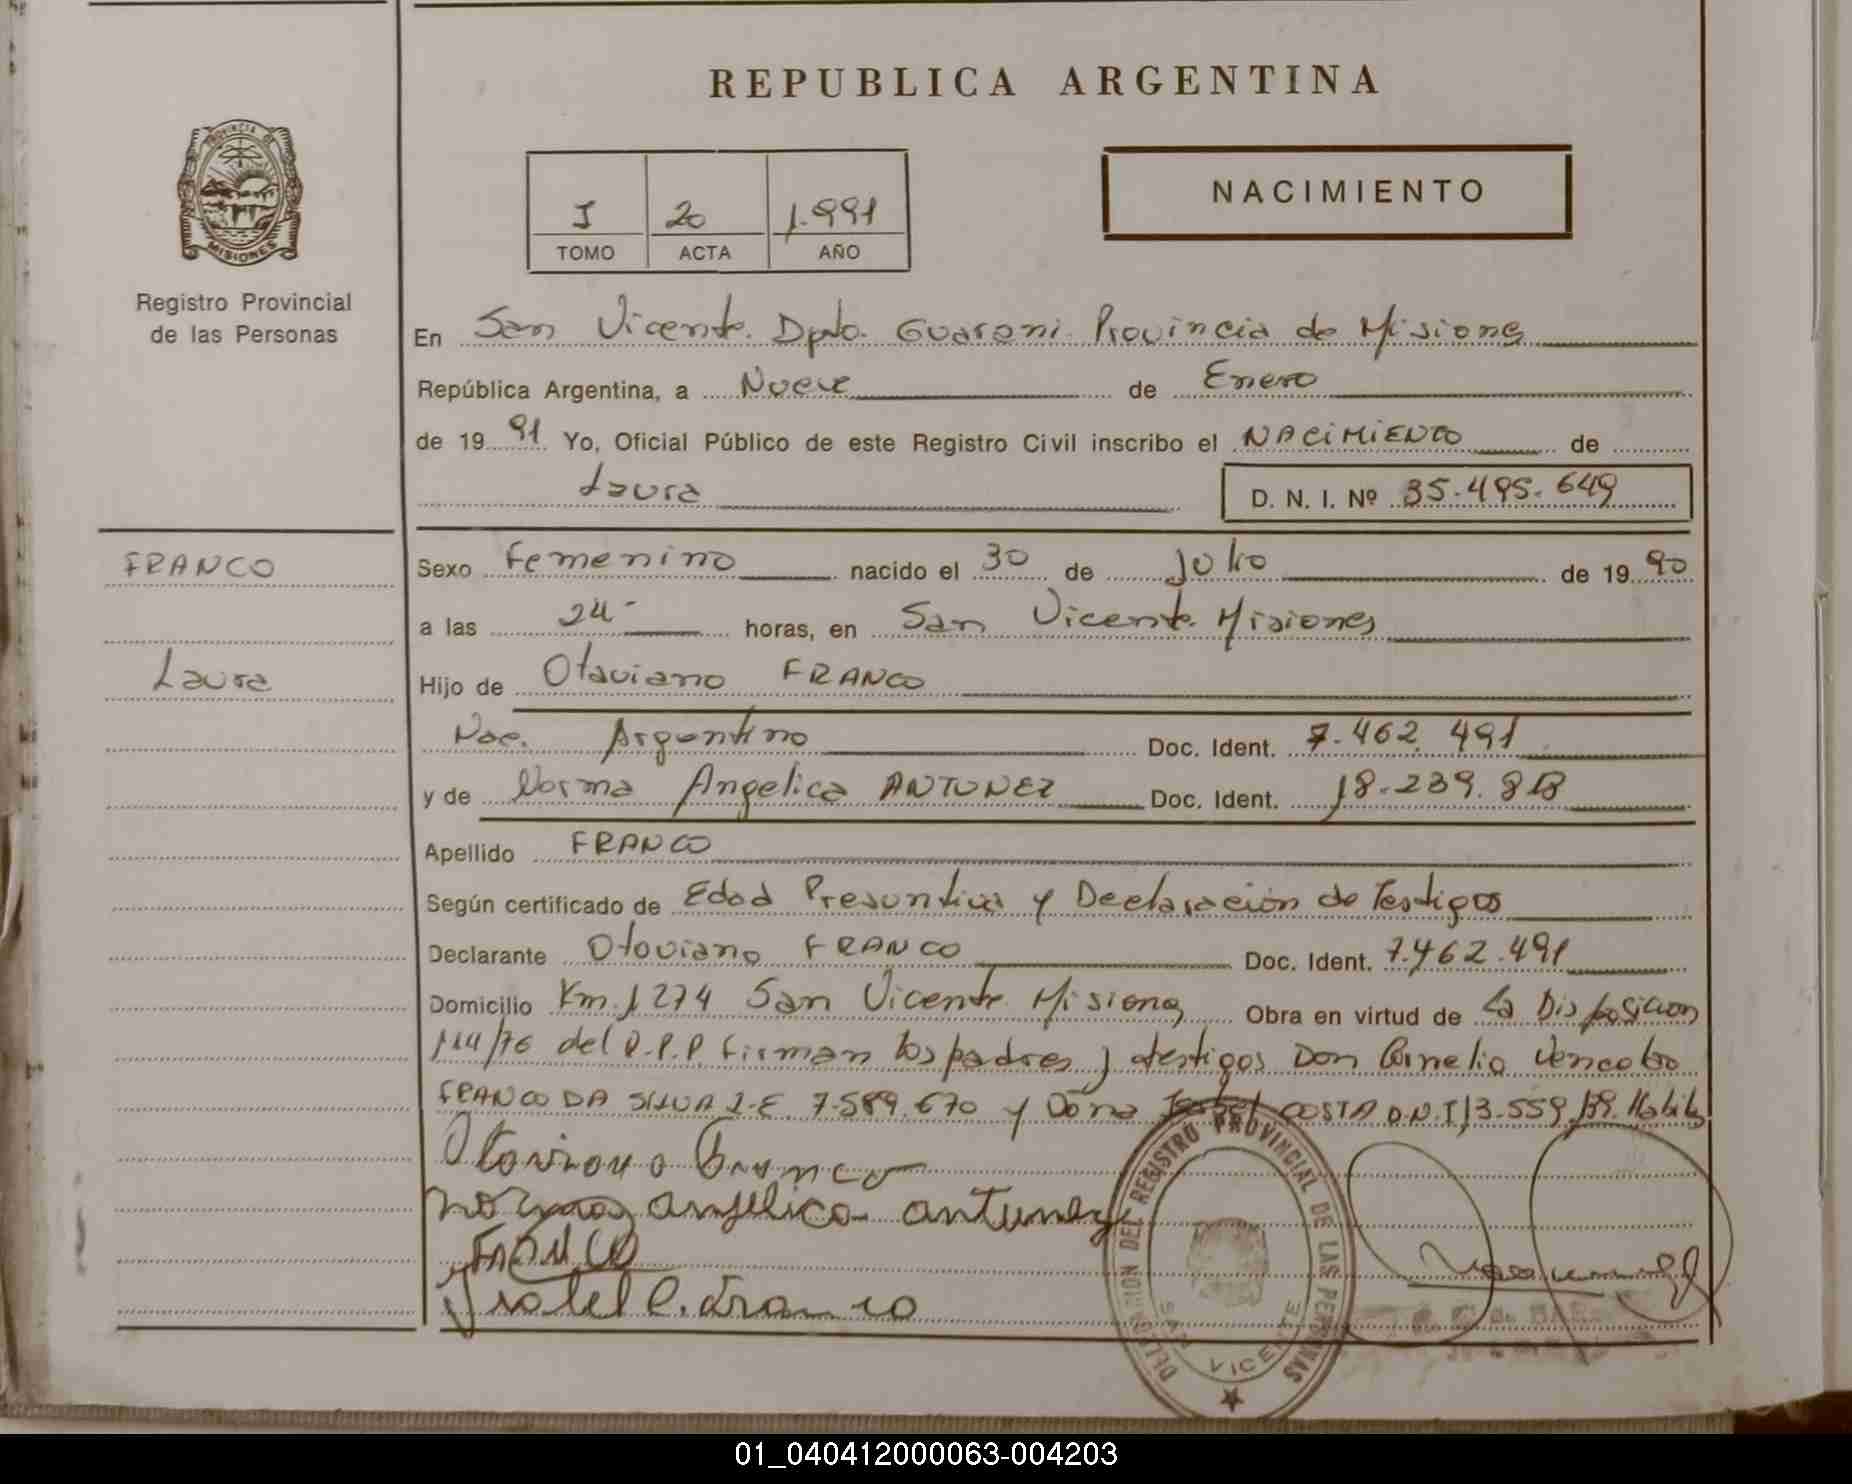 REPUBLICA ARGENTINA
PROVINCIA DE
MISIONES
Registro Provincial
de las Personas
I 20 1.991
TOMO ACTA AÑO
NACIMIENTO
En San Vicente. Dpto. Guarani. Provincia de Misiones
República Argentina, a Nueve de Enero
de 19 91 Yo, Oficial Público de este Registro Civil inscribo el NACIMIENTO de
Laura D. N. I. Nº 35.495.649
FRANCO
Laura
Sexo Femenino nacido el 30 de Julio de 19 90
a las 24- horas, en San Vicente. Misiones
Hijo de Otaviano FRANCO
Nac. Argentino Doc. Ident. 7.462.491
y de Norma Angelica ANTUNEZ Doc. Ident. 18.239.
Apellido FRANCO
Según certificado de Edad Presuntiva y Declaración de Testigos
Declarante Otoviano FRANCO Doc. Ident. 7.462.491
Domicilio Km. 1274 San Vicente Misiones Obra en virtud de La Disposicion
114/76 del R.P.P. Firman los padres y testigos Don Cornelio
FRANCO DA SILVA L.E. 7.589.670 y Doña Isabel COSTA D.N.I 13.559.
Otoviano Franco
norma anjelica antunez
FRANCO
Isabel C. Franco
DELEGACION DEL REGISTRO PROVINCIAL DE LAS PERSONAS
SAN VICENTE
01_040412000063-004203